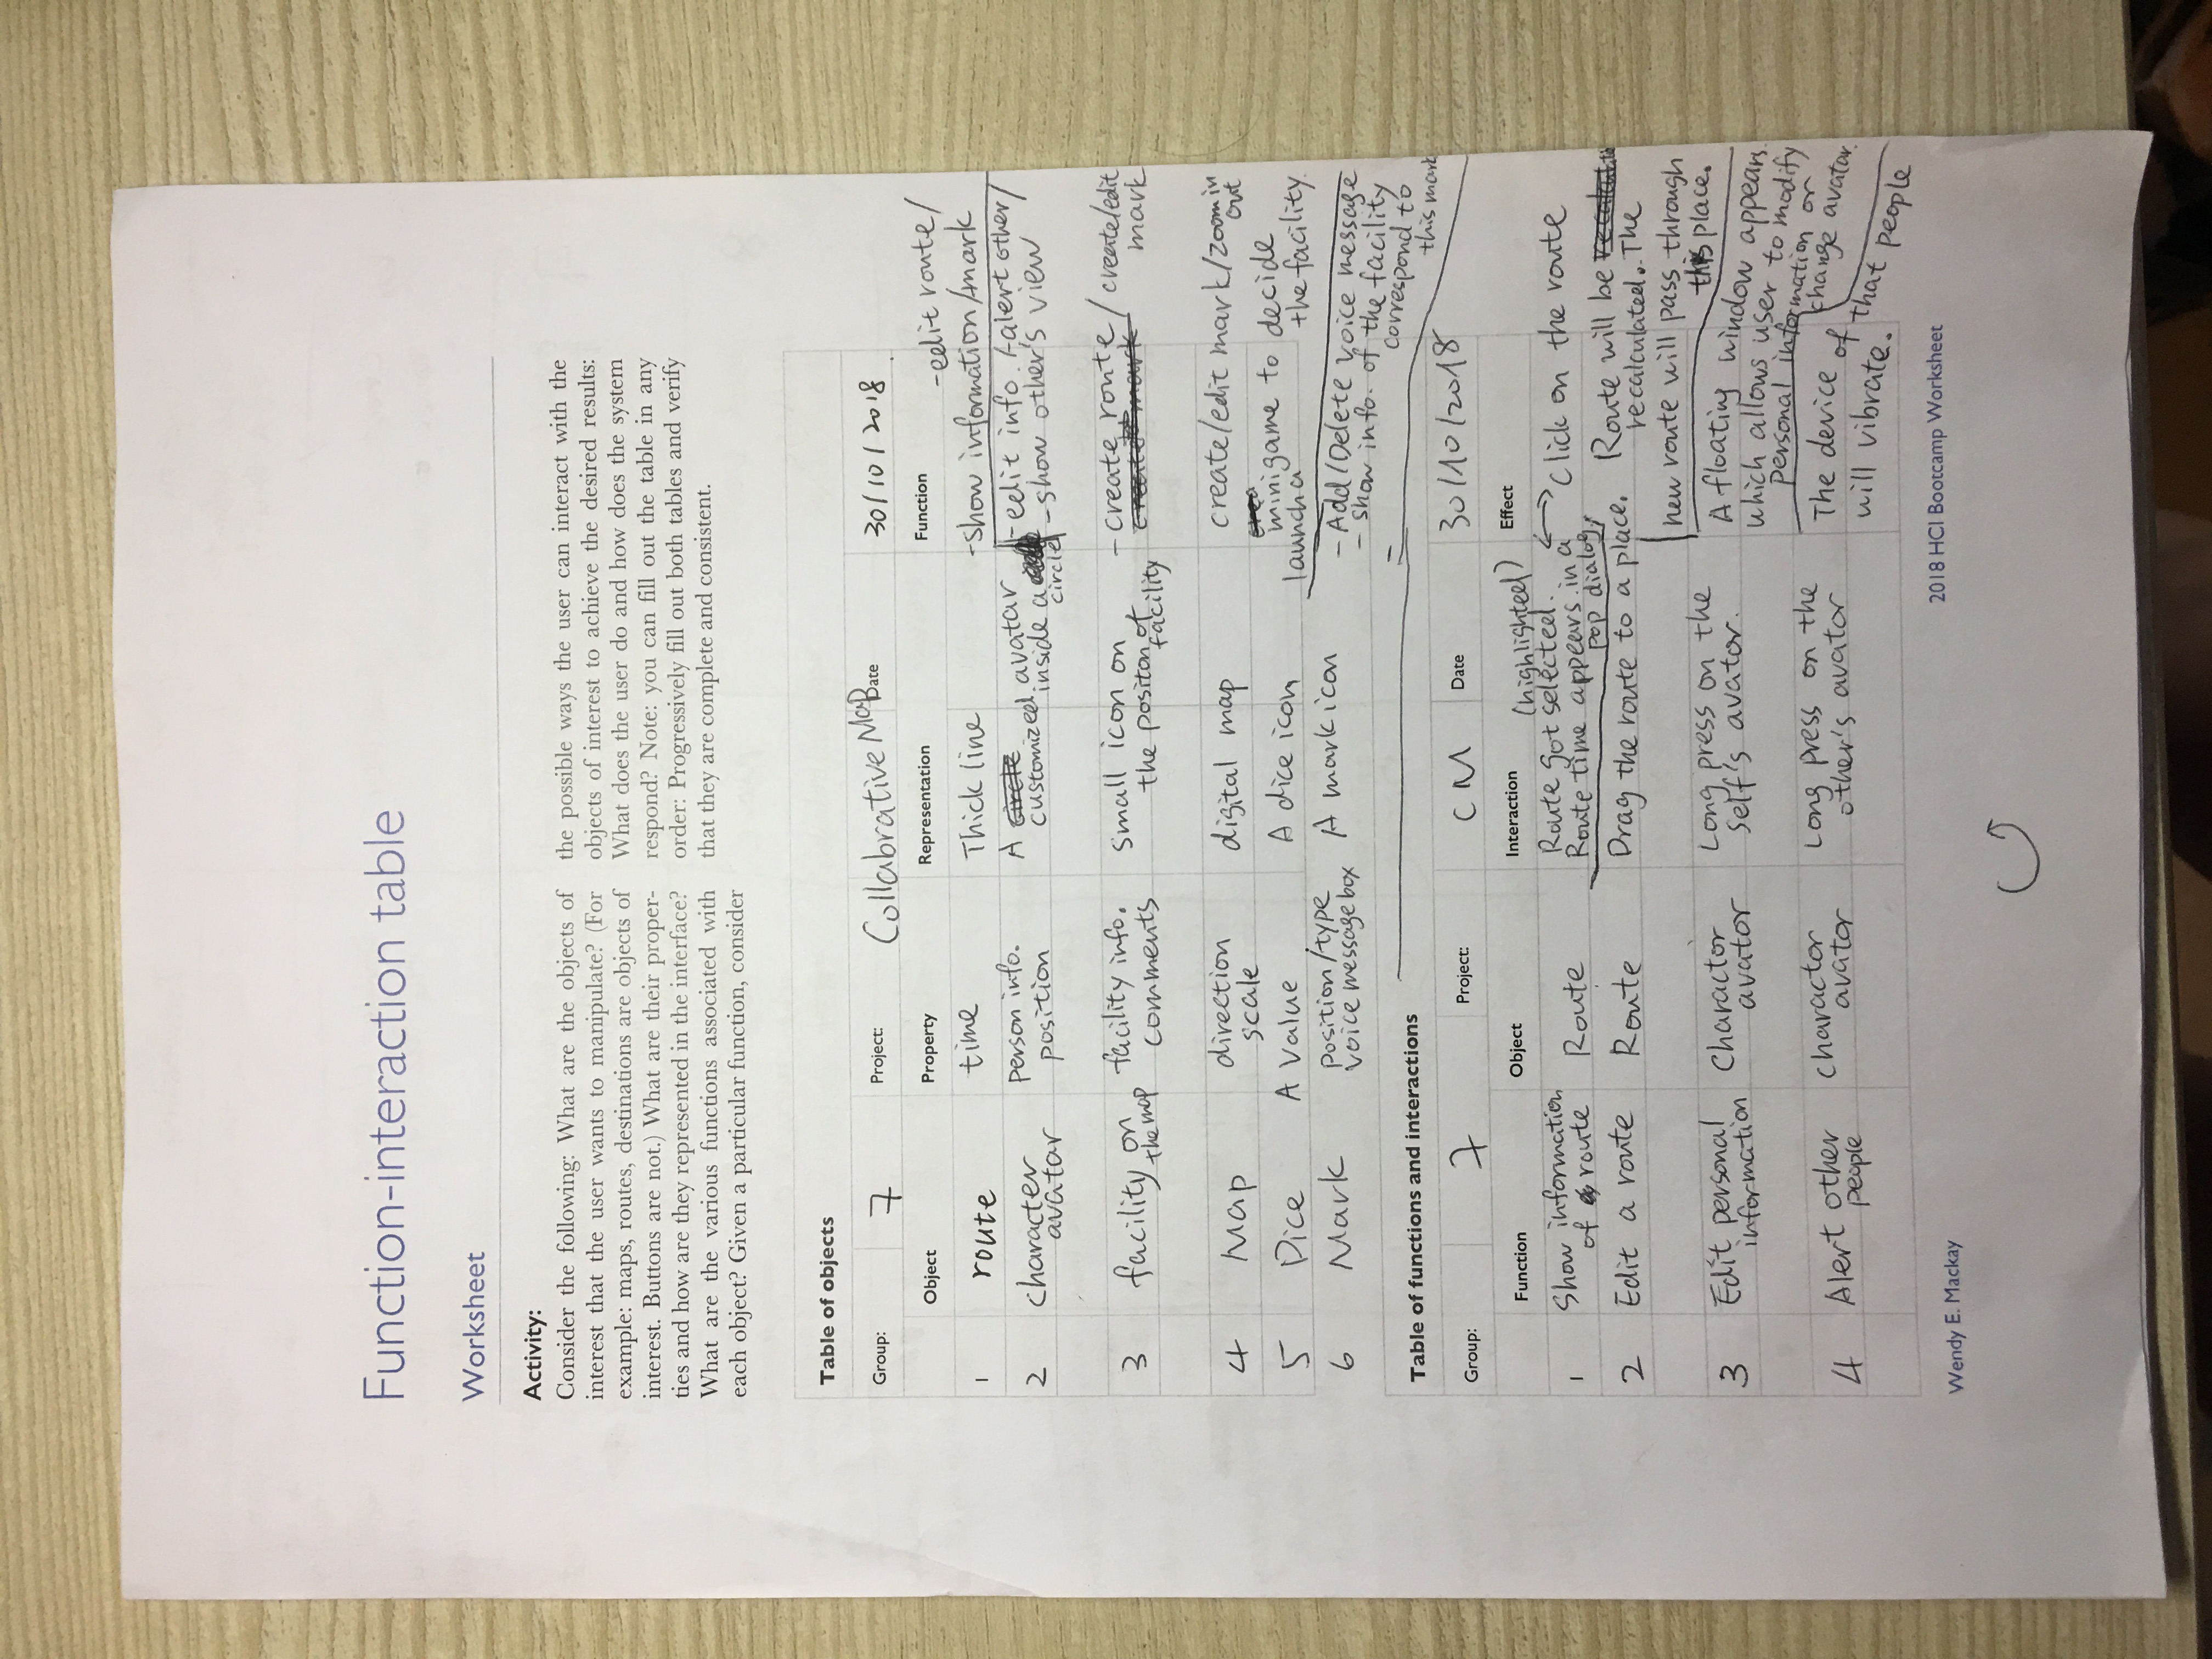 Function-interaction table
Worksheet
Activity:
Consider the following: What are the objects of
interest that the user wants to manipulate? (For
example: maps, routes, destinations are objects of
interest. Buttons are not.) What are their proper-
ties and how are they represented in the interface?
What are the various functions associated with
each object? Given a particular function, consider
the possible ways the user can interact with the
objects of interest to achieve the desired results:
What does the user do and how does the system
respond? Note: you can fill out the table in any
order: Progressively fill out both tables and verify
that they are complete and consistent.
Table of objects
Group: 7 Project: Collabrative Map Date 30/10/2018
Object Property Representation Function
1 route time Thick line -edit route/
-show information/mark
2 character avatar person info. position A circle customized avatar inside a circle -edit info. /-alert other/
-show other's view
3 facility on the map facility info. comments small icon on the positon of facility -create route / create/edit mark
create mark
4 Map direction scale digital map create/edit mark/zoom in out
5 Dice A value A dice icon launch a minigame to decide the facility.
6 Mark position/type voice message box A mark icon - Add/Delete voice message
- show info. of the facility
correspond to
this mark
Table of functions and interactions
Group: 7 Project: CM Date 30/10/2018
Function Object Interaction Effect
1 Show information of route Route (highlighted)
Route got selected.
Route time appears in a
pop dialog. Click on the route
2 Edit a route Route Drag the route to a place. Route will be
recalculated. The
new route will pass through
this place.
3 Edit personal information Charactor avator Long press on the self's avator. A floating window appears
which allows user to modify
personal information or
change avatar.
4 Alert other people Charactor avator Long press on the other's avator The device of that people
will vibrate.
Wendy E. Mackay
2018 HCI Bootcamp Worksheet